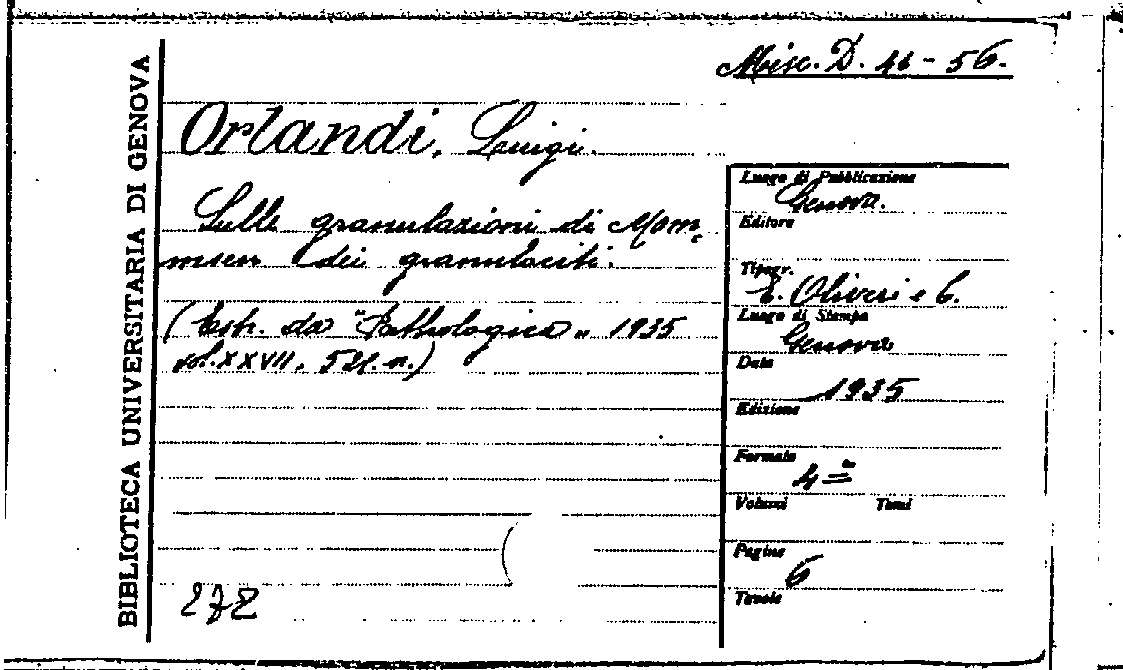 BIBLIOTECA UNIVERSITARIA DI GENOVA
Misc. D. 46 - 56.
Orlandi, Luigi.
Sulle granulazioni di Mom,
msen dei granulociti.
(Estr. da "Pathologica" 1935
vol. XXVII, 521. n.)
Luogo di Pubblicazione
Genova.
Editore
Tipogr.
E. Oliveri e C.
Luogo di Stampa
Genova
Data
1935
Edizione
Formato
4º
Volumi Tomi
Pagine
6
Tavole